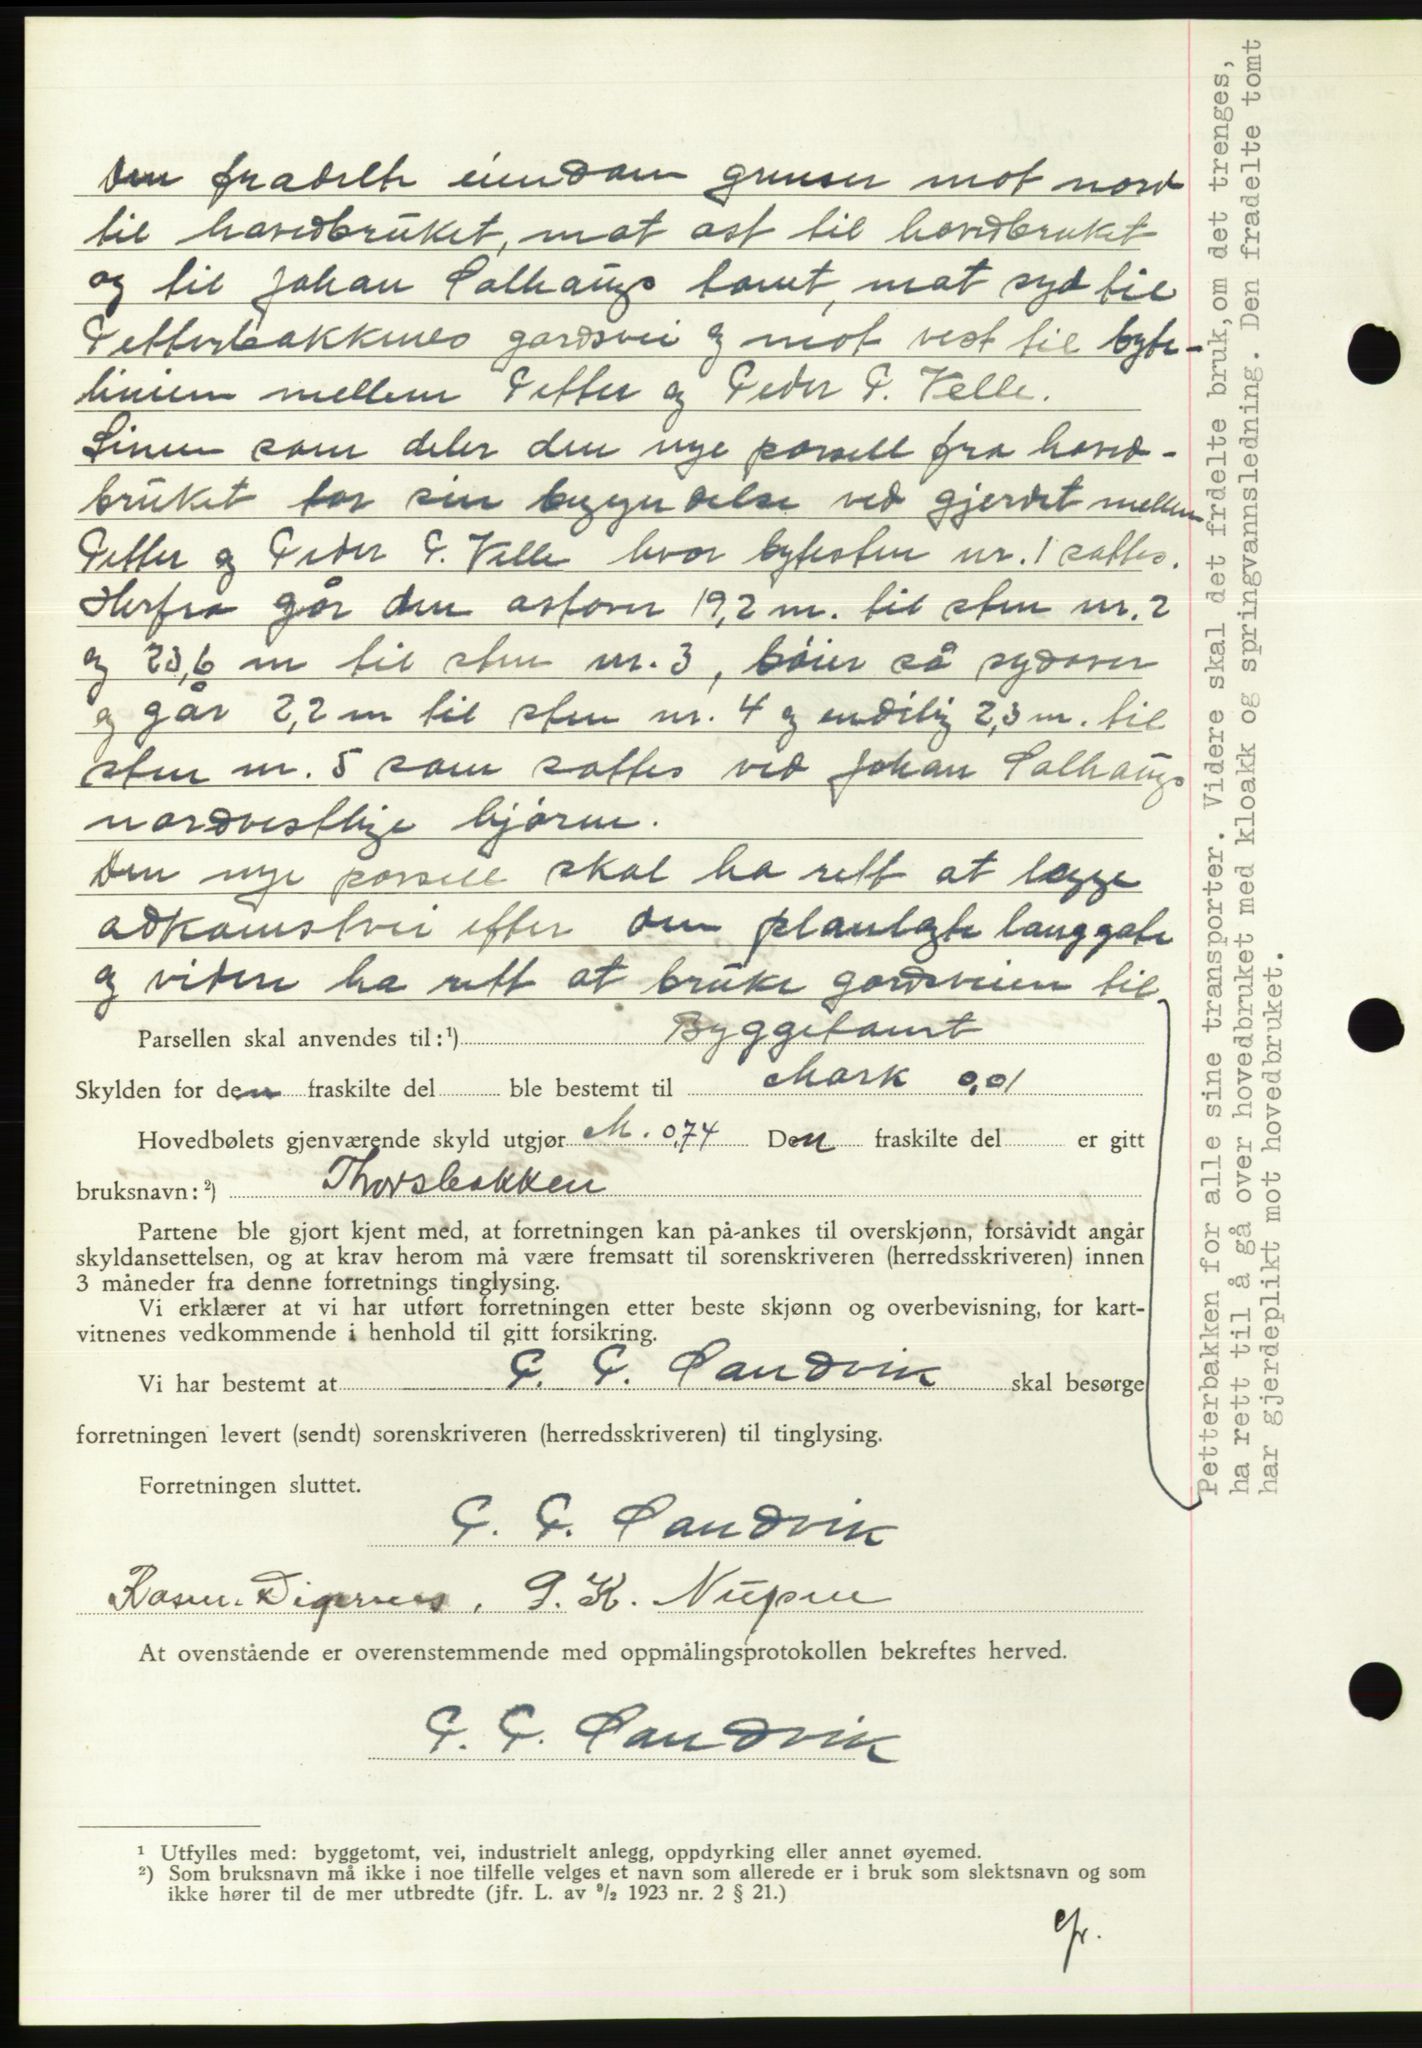 Den fradelte eiendom grenser mot nord
til hovedbruket, mot ost til hovedbruket
og til Johan Solhaugs tomt, mot syd til
Petterbakkenes gardsvei og mot vest til byte-
linien mellem Petter og Peder P. Velle.
Linien som deler den nye parsell fra hoved-
bruket tar sin begyndelse ved gjerdet mellem
Petter og Peder P. Velle hvor bytesten nr. 1 sattes.
Herfra går den ostover 19,2 m. til sten nr. 2
og 23,6 m til sten nr. 3, bøier så sydover
og går 2,2 m til sten nr. 4 og endelig 2,3 m. til
sten nr. 5 som sattes ved Johan Solhaugs
nordvestlige hjørne.
Den nye parsell skal ha rett at legge
adkomstvei efter den planlagte langgate
og videre ha rett at bruke gardsveien til
Parsellen skal anvendes til: ¹) Byggetomt
Skylden for den fraskilte del ble bestemt til Mark 0,01
Hovedbølets gjenværende skyld utgjør M. 0,74 Den fraskilte del er gitt
bruksnavn: ²) Thorsbakken
Partene ble gjort kjent med, at forretningen kan på-ankes til overskjønn, forsåvidt angår
skyldansettelsen, og at krav herom må være fremsatt til sorenskriveren (herredsskriveren) innen
3 måneder fra denne forretnings tinglysing.
Vi erklærer at vi har utført forretningen etter beste skjønn og overbevisning, for kart-
vitnenes vedkommende i henhold til gitt forsikring.
Vi har bestemt at P. P. Sandvik skal besørge
forretningen levert (sendt) sorenskriveren (herredsskriveren) til tinglysing.
Forretningen sluttet.
P. P. Sandvik
Rasm. Digernes, P. K. Nupen
At ovenstående er overenstemmende med oppmålingsprotokollen bekreftes herved.
P. P. Sandvik
¹ Utfylles med: byggetomt, vei, industrielt anlegg, oppdyrking eller annet øyemed.
²) Som bruksnavn må ikke i noe tilfelle velges et navn som allerede er i bruk som slektsnavn og som
ikke hører til de mer utbredte (jfr. L. av ⁹/₂ 1923 nr. 2 § 21.)
Petterbakken for alle sine transporter. Videre skal det frdelte bruk,om det trenges,
ha rett til å gå over hovedbruket med kloakk og springvannsledning. Den fradelte tomt
har gjerdeplikt mot hovedbruket.